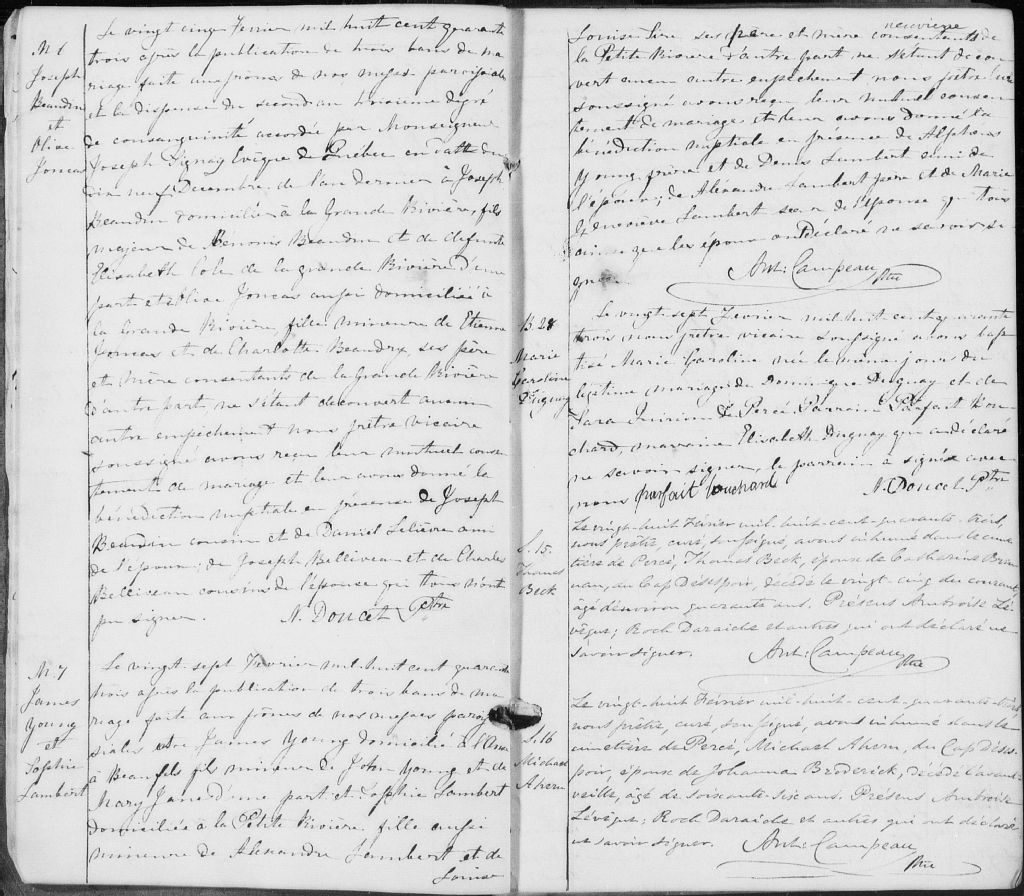 M 6
Joseph
Beaudin
et
Olive
Joncas
Le vingt cinq Fevrier mil huit cent quarante
trois après la publication de trois bans de ma
riage faite aux prônes de nos messes paroissiales
et la dispense du second au troisieme dégré
de consanguinité accordée par Monseigneur
Joseph Signay Evêque de Québec en date du
dix neuf Décembre de l'an dernier à Joseph
Beaudin domicilié à la Grande Rivière, fils
majeur de Bénonis Beaudin et de defunte
Elisabeth Cole de la grande Rivière d'une
part et Olive Joncas aussi domiciliée à
la Grande Rivière, fille mineure de Etienne
Joncas et de Charlotte Beaudry, ses père
et mère consentants de la Grande Rivière
d'autre part, ne s'étant decouvert aucun
autre empêchement nous prêtre vicaire
soussigné avons reçu leur mutuel consen
tement de mariage et leur avons donné la
bénédiction nuptiale en présense de Joseph
Beaudin cousin et de Daniel Lelièvre ami
de l'époux; de Joseph Belliveau et de Charles
Belliveau cousins de l'épouse qui tous n'ont
pu signer. N. Doucet Ptre
M. 7
James
Young
et
Sophie
Lambert
Le vingt-sept Fevrier mil huit cent quarante
trois après la publication de trois bans de ma
riage faite aux prônes de nos messes parois
siales entre James Young domicilié à l'Anse
à Beaufils fils mineur de John Young et de
Mary Jane d'une part et Sophie Lambert
domiciliée à la Petite Rivière fille aussi
mineure de Alexandre Lambert et de
Louise
Louise Siré ses père et mère consentants de
la Petite Rivière d'autre part ne s'étant décou
vert aucun autre empêchement nous prêtre curé
soussigné avons reçu leur mutuel consen
tement de mariage et leur avons donné la
bénédiction nuptiale en présence de Alphonse
Young, frère et de Denis Lambert ami de
l'époux; de Alexandre Lambert père et de Marie
Genevieve Lambert sœur de l'épouse qui tous
ainsi que les époux ont déclaré ne savoir si
gner.
Ant: Campeau Ptre
B. 28
Marie
Caroline
Duguay
Le vingt-sept Fevrier mil huit cent quarante
trois nous prêtre vicaire soussigné avons bap
tisé Marie Caroline née le même jour du
légitime mariage de Dominique Duguay et de
de Percé Parrain Parfait Bou
chard, marraine Elisabeth Duguay qui a déclaré
ne savoir signer, le parrain a signé avec
nous parfait bouchard N. Doucet Ptre
S. 15.
Thomas
Beck
Le vingt-huit Février mil-huit-cent-quarante-trois,
nous prêtre, curé, soussigné, avons inhumé dans le cime
tière de Percé, Thomas Beck, époux de Catharine
du Cap Désespoir, décédé le vingt-cinq du courant,
âgé d'environ quarante ans. Présens Ambroise Lé-
vêque; Roch Daraiche et autres qui ont déclaré ne
savoir signer. Ant: Campeau Ptre
S. 16
Michael
Ahern
Le vingt-huit Février mil-huit-cent-quarante-trois,
nous prêtre, curé, soussigné, avons inhumé dans le
cimetière de Percé, Michael Ahern, du Cap Déses-
poir, époux de Johanna Broderick, décédé l'avant
veille, âgé de soixante-six ans. Présens Ambroise
Lévêque; Roch Daraiche et autres qui ont déclaré
ne savoir signer. Ant: Campeau Ptre